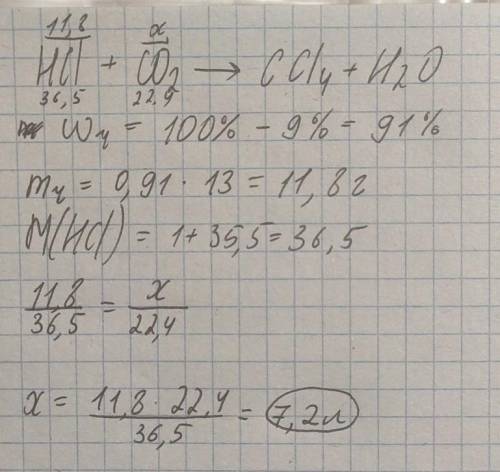 11,8 x
HCl + CO2 → CCl4 + H2O
36,5 22,4
Wч = 100% - 9% = 91%
mч = 0,91 · 13 = 11,8 г
M(HCl) = 1 + 35,5 = 36,5
11,8 / 36,5 = x / 22,4
x = 11,8 · 22,4 / 36,5 = 7,2 л